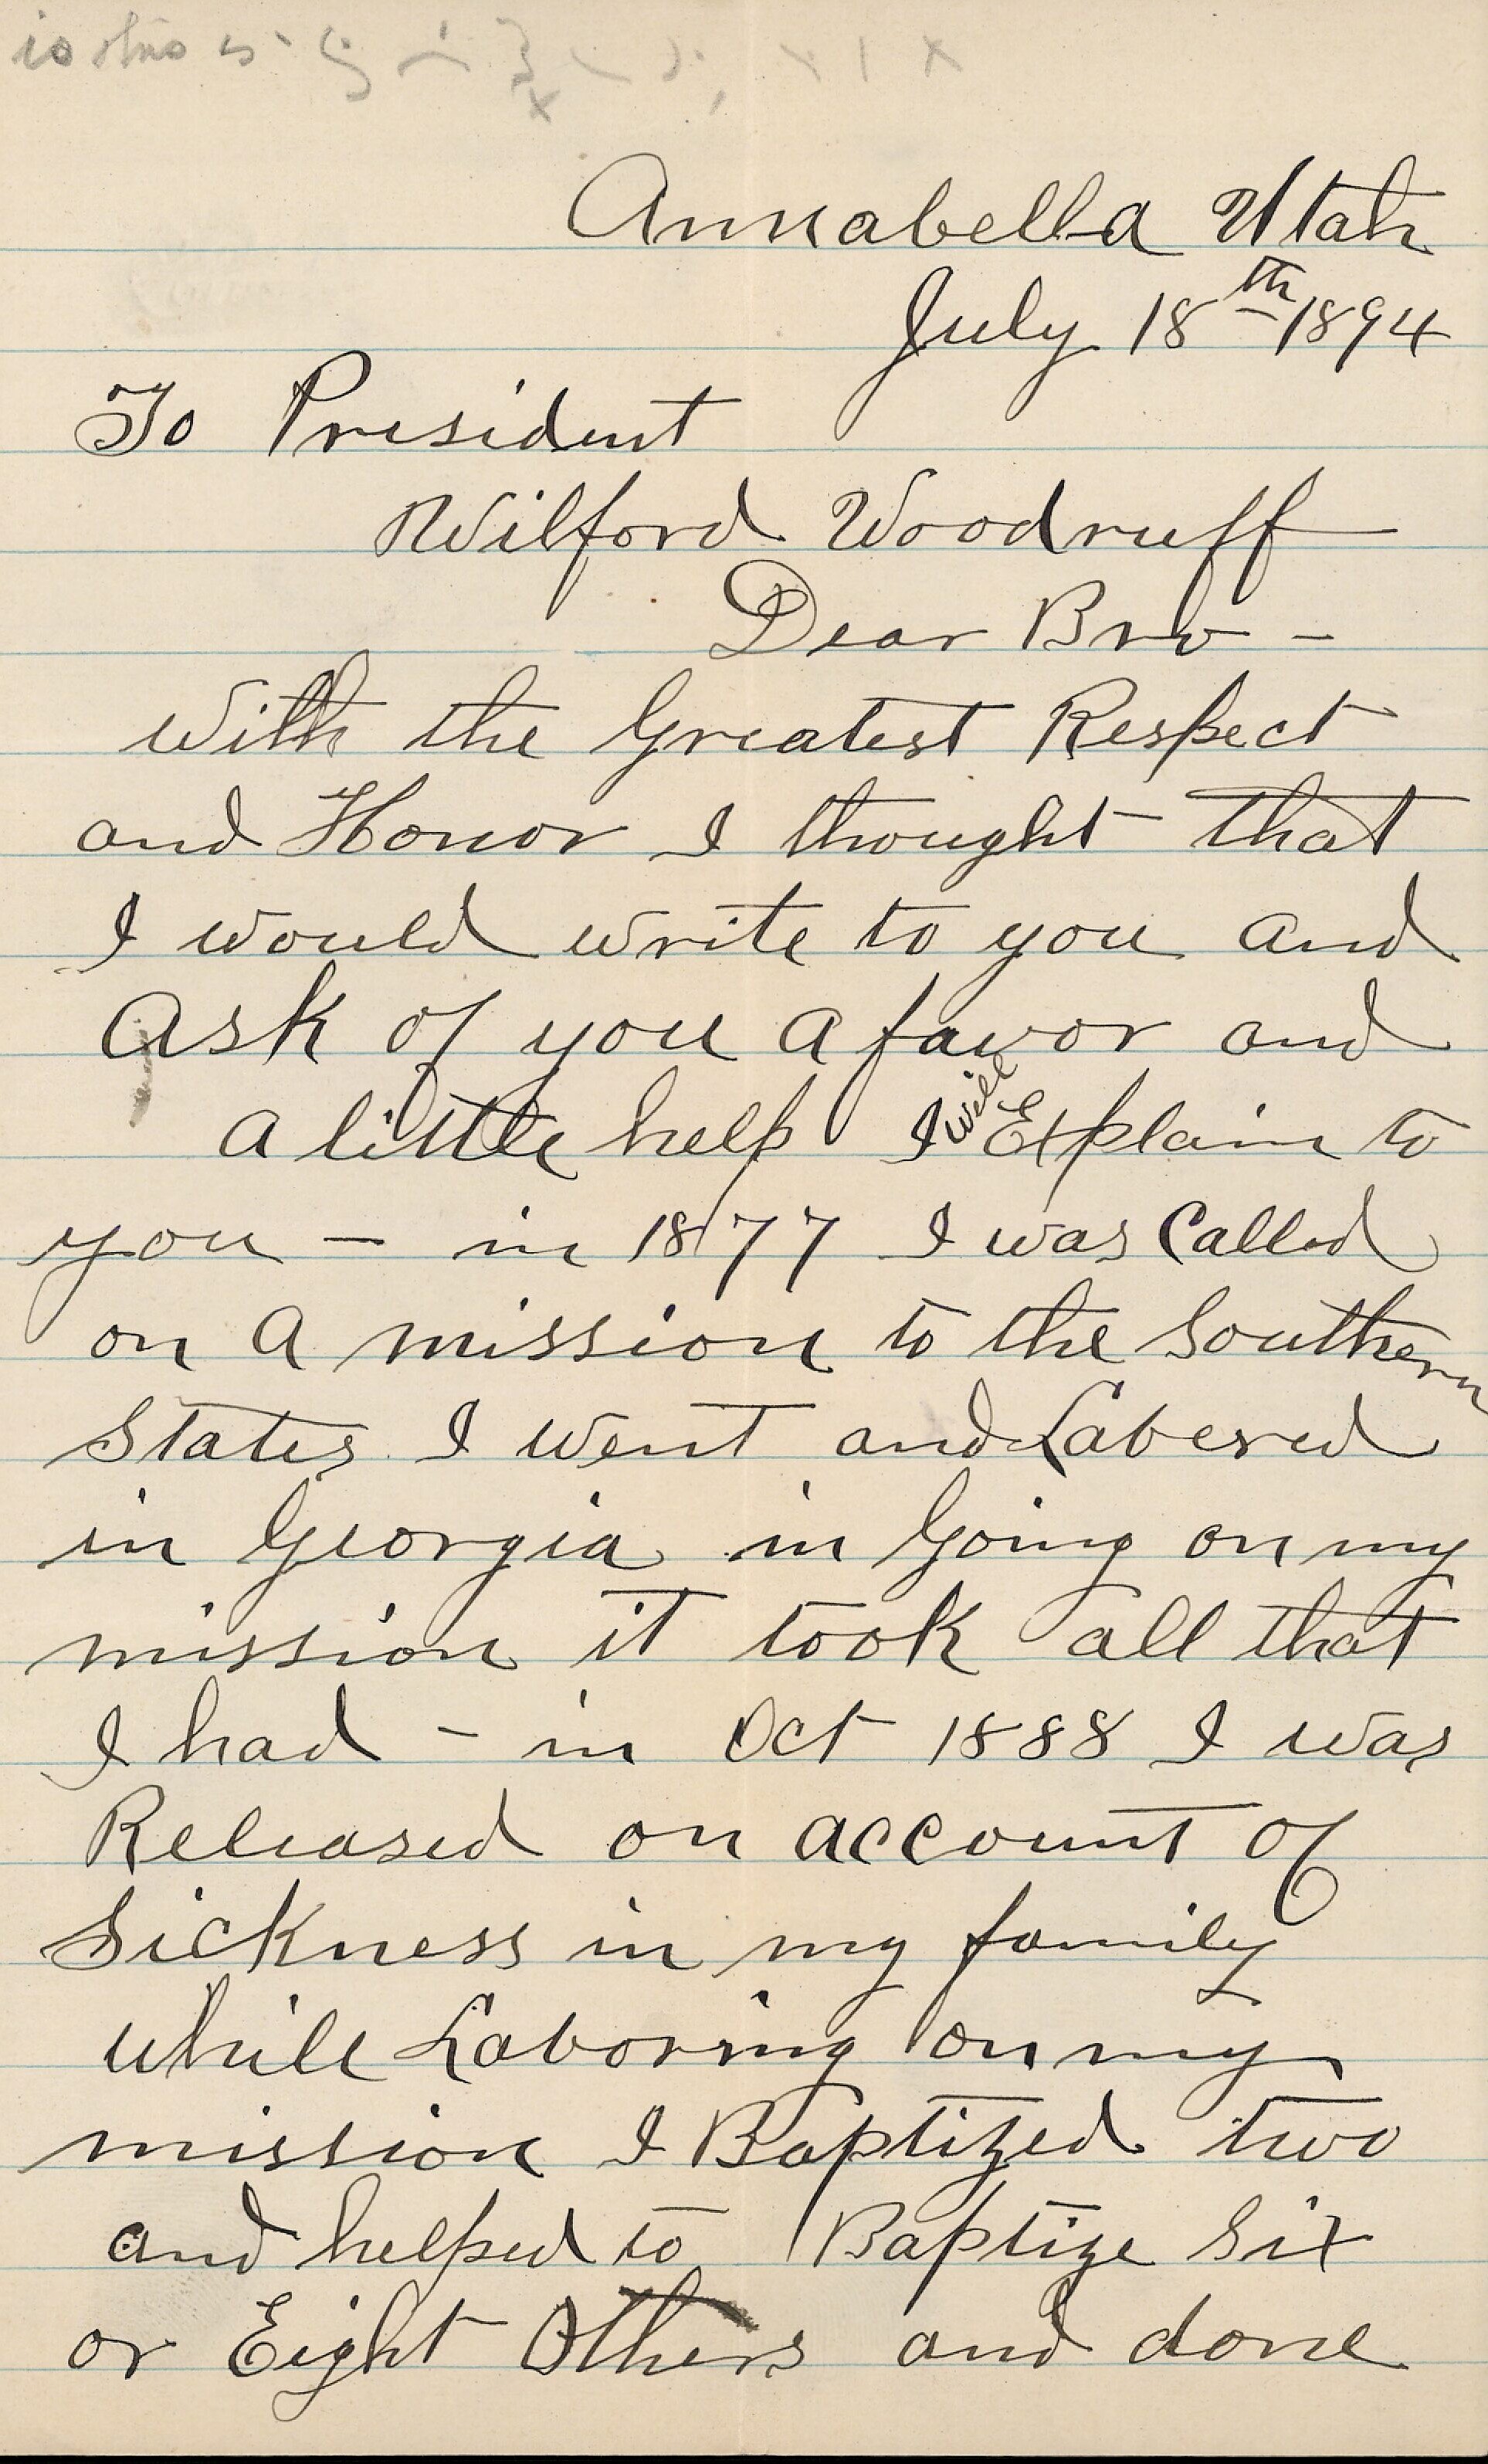 Annabella Utah
July 18th 1894
To President
Wilford Woodruff
Dear Bro -
With the Greatest Respect
and Honor I thought that
I would write to you and
Ask of you a favor and
a little help I will Explain to
you - in 1877 I was Called
on a mission to the Southern
States I went and Labered
in Georgia in Going on my
mission it took all that
I had - in Oct 1888 I was
Released on account of
Sickness in my family
while Laboring on my
mission I Baptized two
and helped to Baptize Six
or Eight Others and done